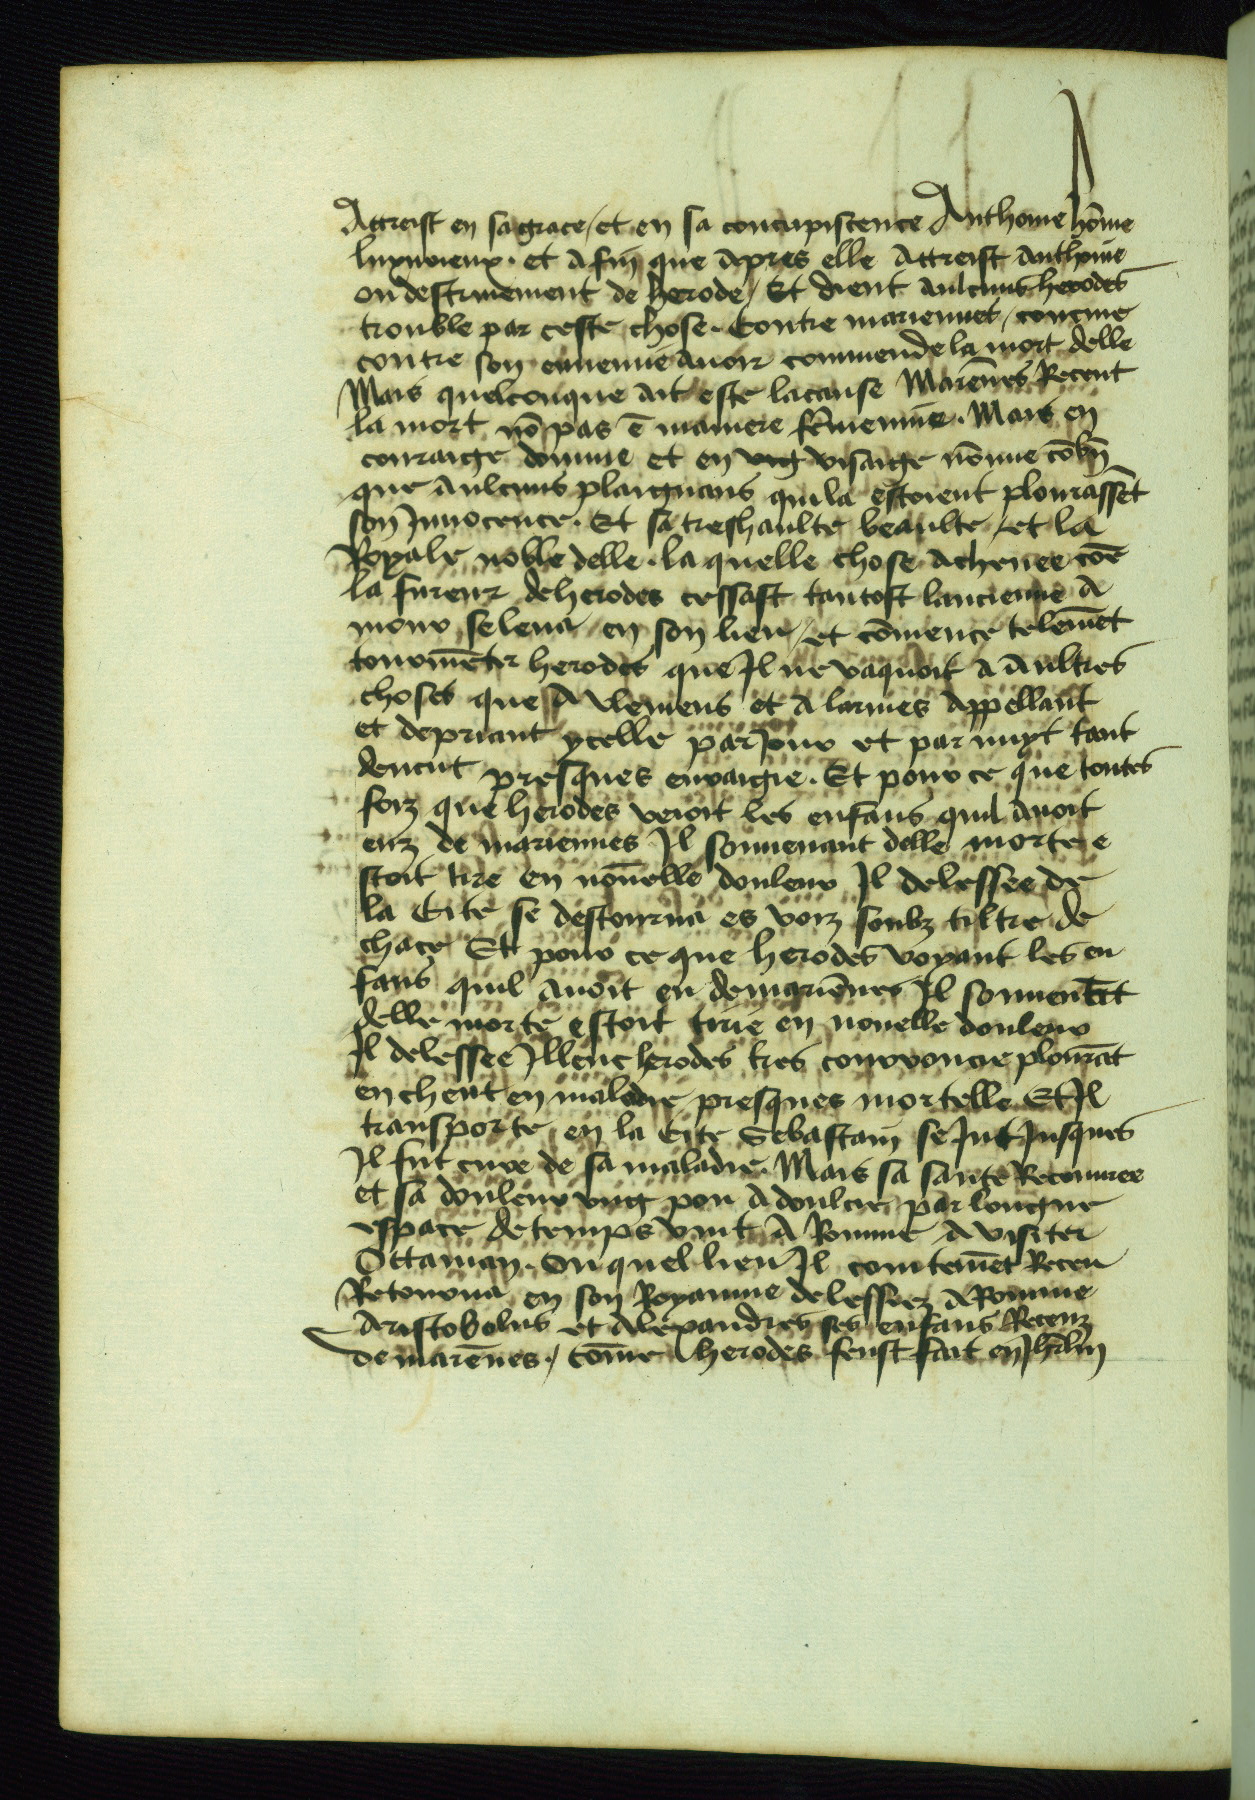 Attreist en sa grace / et en sa concupiscence Anthoine hōme
luxurieux. et a fin que apres elle attreist anthoine
ou destruiement de herode / Et dient aulcuns herodes
trouble par ceste chose. Contre mariennes / comme
contre son ennemie avoir commende la mort delle
Mais quelconque ait este la cause Mariēnes Receut
la mort nō pas ē maniere fēmenine. Mais en
couraige domme et en ung visaige nōmue cōbn̄
que aulcuns plaignans qui la estoient plourassēt
son Innocence. Et sa treshaulte beaulte / et la
Royale noble delle. la quelle chose achevee cōe
la fureur de herodes cessast tantost lancienne a
mour se leva en son lieu / et cōmence telemēt
tourmēter herodes que Il ne vaquoit a aultres
choses que a plemens et a larmes appellant
et depriant ycelle par Jour et par nuyt tant
devent presques enraigie. Et pour ce que toutes
foiz que herodes veoit les enfans quil avoit
euz de mariennes Il souvenant delle morte e
stoit tire en nouvelle douleur Il delessee de
la Cite se destourna es voiz soubz tiltre de
chace Et pour ce que herodes voyant les en
fans quil avoit eu de mariēnes Il souvenēt
delle morte estoit tirie en nouvelle douleur
Il delessee Illeuc herodes tres courroucie plourāt
encheut en maladie presques mortelle Et Il
transporte en la Cite Sebastain se Jut Jusques
Il fut cure de sa maladie. Mais sa sante Recouvree
et sa douleur ung pou adoulcie par longue
espace de temps vint a Romme a visiter
Octavian. Ou quel lieu Il cointemēt Receu
Retourna en son Royaume delessiez a Romme
Aristobolus et Alexandres ses enfans Receuz
de mariēnes. / Cōme herodes feust fait en Jhrlm